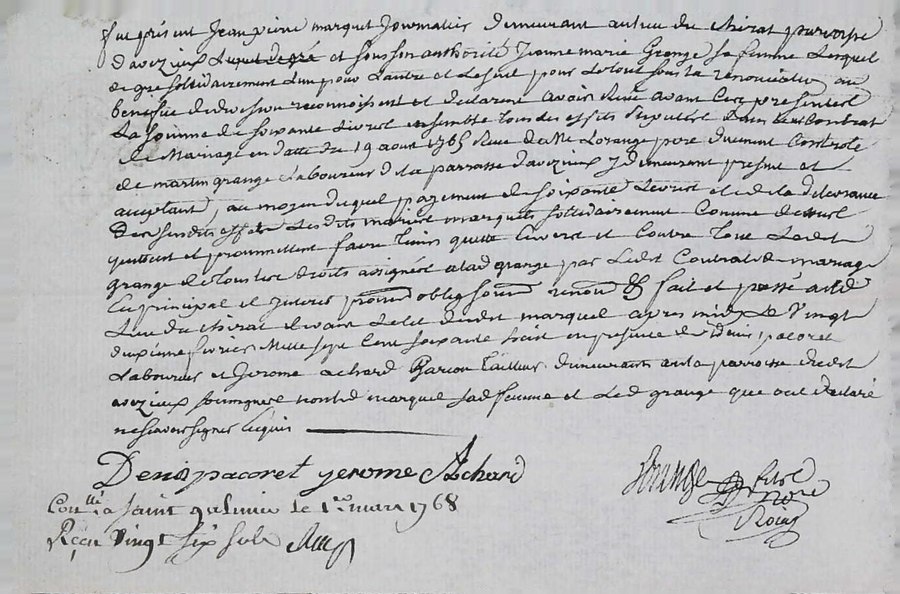 fut présent Jean pierre marquet Journalier demeurant au lieu du chirat parroisse
d'avezieux Lequel de gré et sous son authorité Jeanne marie Grange sa femme Lesquel
de gré sollidairement L'un pour L'autre et le seul pour le tout sous la renonciation au
benefice de division reconnoissent et declarent avoir Reçu avant Ces presentes
La somme de soixante Livres ensemble tous les effets stipullés dans leur Contrat
de Mariage en datte du 19 aout 1765 Reçu de Me Lorange pere duement Controlé
de martin grange Laboureur de la parroisse d'avezieux y demeurant present et
acceptant, au moyen duquel payement de soixante Livres et de la delivrance
des susdits effets Lesdits mariés marquet sollidairement Comme dessus
quittent et promettent faire tenir quitte Envers et Contre tous Ledit
grange de tous les droits assignés a lad grange par Ledit Contrat de mariage
En principal et Interets promett oblig soum renon &c fait et passé audit
Lieu du chirat devant Le dit marquet apres midy Le Vingt
deuxieme fevrier Mille sept Cent soixante huit en presence de denis pacoret
Laboureur et Jerome achard Garcon tailleur demeurants en la parroisse dudit
avezieux soussignés non led marquet sad femme et Led grange qui ont declaré
ne scavoir signer Enquis
Denis pacoret yerome Achard
Conllé a saint galmier le 1er mars 1768
Reçu Vingt six sols